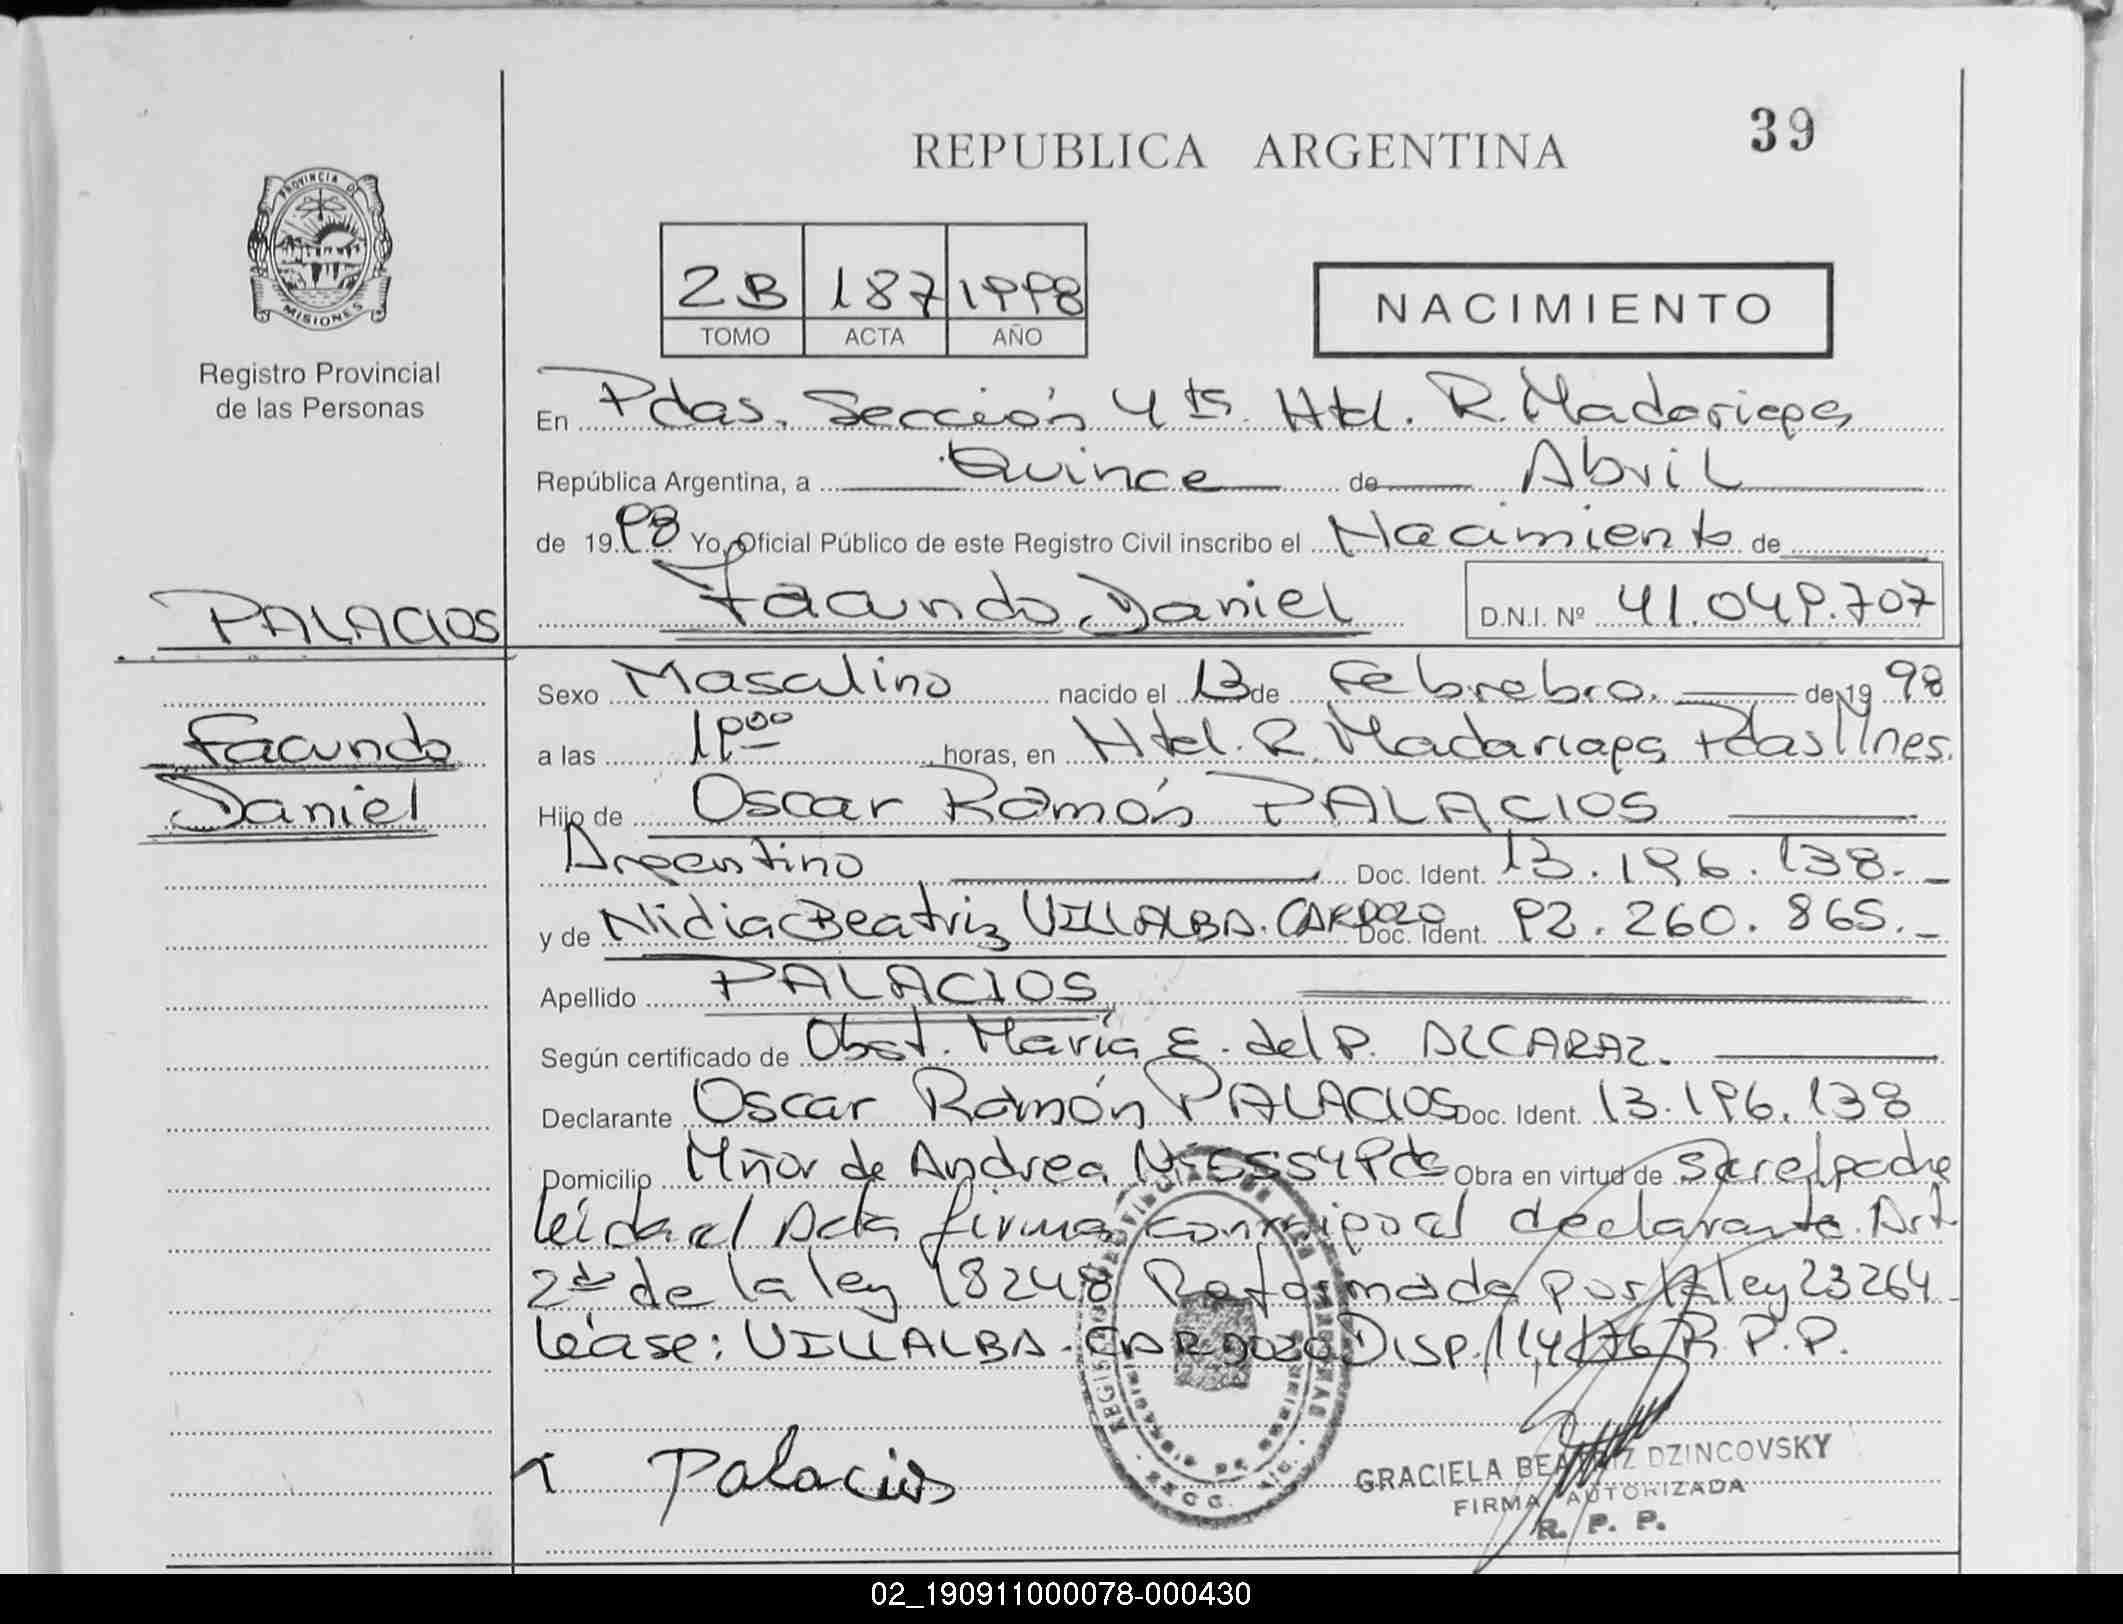 39
REPUBLICA ARGENTINA
PROVINCIA DE
MISIONES
Registro Provincial
de las Personas
2B 187 1998
TOMO ACTA AÑO
NACIMIENTO
En Pdas. Sección 4ta. Htal. R. Madariaga
República Argentina, a Quince de Abril
de 1998 Yo, Oficial Público de este Registro Civil inscribo el Nacimiento de
Facundo Daniel D.N.I. Nº 41.049.707
PALACIOS
Facundo
Daniel
Sexo Masculino nacido el 13 de Febrebro. de 19 98
a las 19⁰⁰ horas, en Htal. R. Madariaga Pdas Mnes.
Hijo de Oscar Ramón PALACIOS
Argentino Doc. Ident. 13.196.138.-
y de Nidia Beatriz VILLALBA. CARDOZO Doc. Ident. 92.260.865.-
Apellido PALACIOS
Según certificado de Obst. María E. del P. ALCARAZ.
Declarante Oscar Ramón PALACIOS Doc. Ident. 13.196.138
Domicilio Miñor de Andrea Nº 5554 Pdas Obra en virtud de ser el padre
leída el Acta firma conmigo el declarante. Art
2do de la ley 18248 Reformada por la ley 23264
léase: VILLALBA - CARDOZO Disp. 114/76 R.P.P.
Palacios
GRACIELA BEATRIZ DZINCOVSKY
FIRMA AUTORIZADA
R. P. P.
02_190911000078-000430